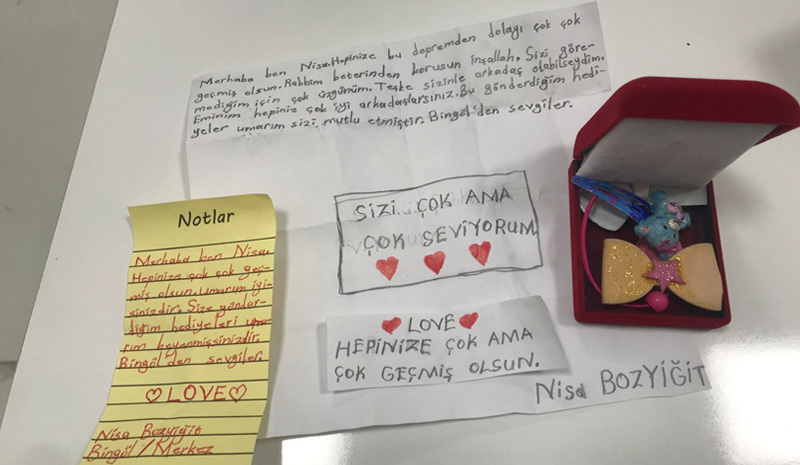 Merhaba ben Nisa. Hepinize bu depremden dolayı çok çok
geçmiş olsun. Rabbim beterinden korusun inşallah. Sizi göre-
mediğim için çok üzgünüm. Teşke sizinle arkadaç olabilseydim.
Eminim hepiniz çok iyi arkadaşlarsınız. Bu gönderdiğim hedi-
yeler umarım sizi mutlu etmiştir. Bingöl'den sevgiler.
SİZİ ÇOK AMA
ÇOK SEVİYORUM
LOVE
HEPİNİZE ÇOK AMA
ÇOK GEÇMİŞ OLSUN.
Nisa BOZYİĞİT
Notlar
Merhaba ben Nisa.
Hepinize çok çok geç-
miş olsun. Umarım iyi-
sinizdir. Size gönder-
diğim hediyeleri uma-
rım beyenmişsinizdir.
Bingöl'den sevgiler.
LOVE
Nisa Bozyiğit
Bingöl / Merkez